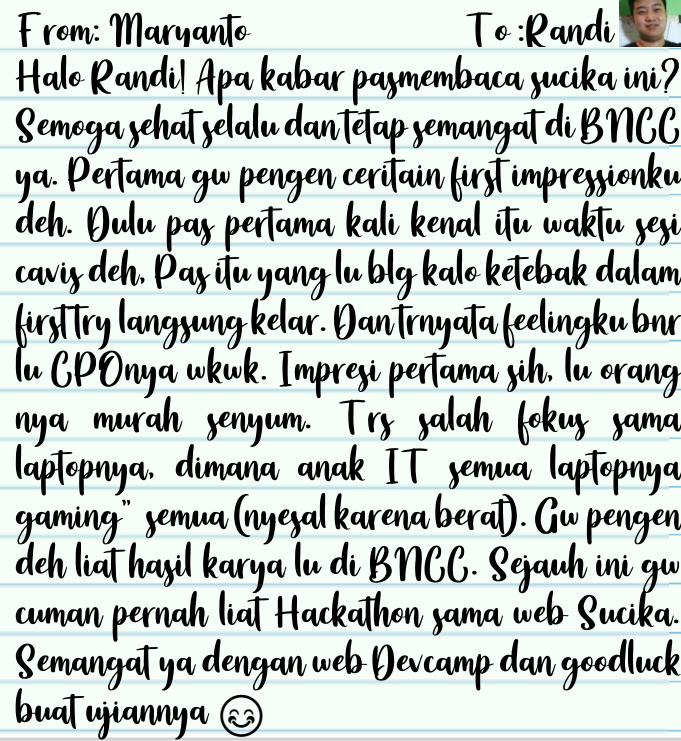 From: Maryanto To :Randi
Halo Randi! Apa kabar pasmembaca sucika ini?
Semoga sehat selalu dan tetap semangat di BNCC
ya. Pertama gw pengen ceritain first impressionku
deh. Dulu pas pertama kali kenal itu waktu sesi
cavis deh, Pas itu yang lu blg kalo ketebak dalam
first try langsung kelar. Dan trnyata feelingku bnr
lu CPOnya wkwk. Impresi pertama sih, lu orang
nya murah senyum. Trs salah fokus sama
laptopnya, dimana anak IT semua laptopnya
gaming" semua (nyesal karena berat). Gw pengen
deh liat hasil karya lu di BNCC. Sejauh ini gw
cuman pernah liat Hackathon sama web Sucika.
Semangat ya dengan web Devcamp dan goodluck
buat ujiannya 😊